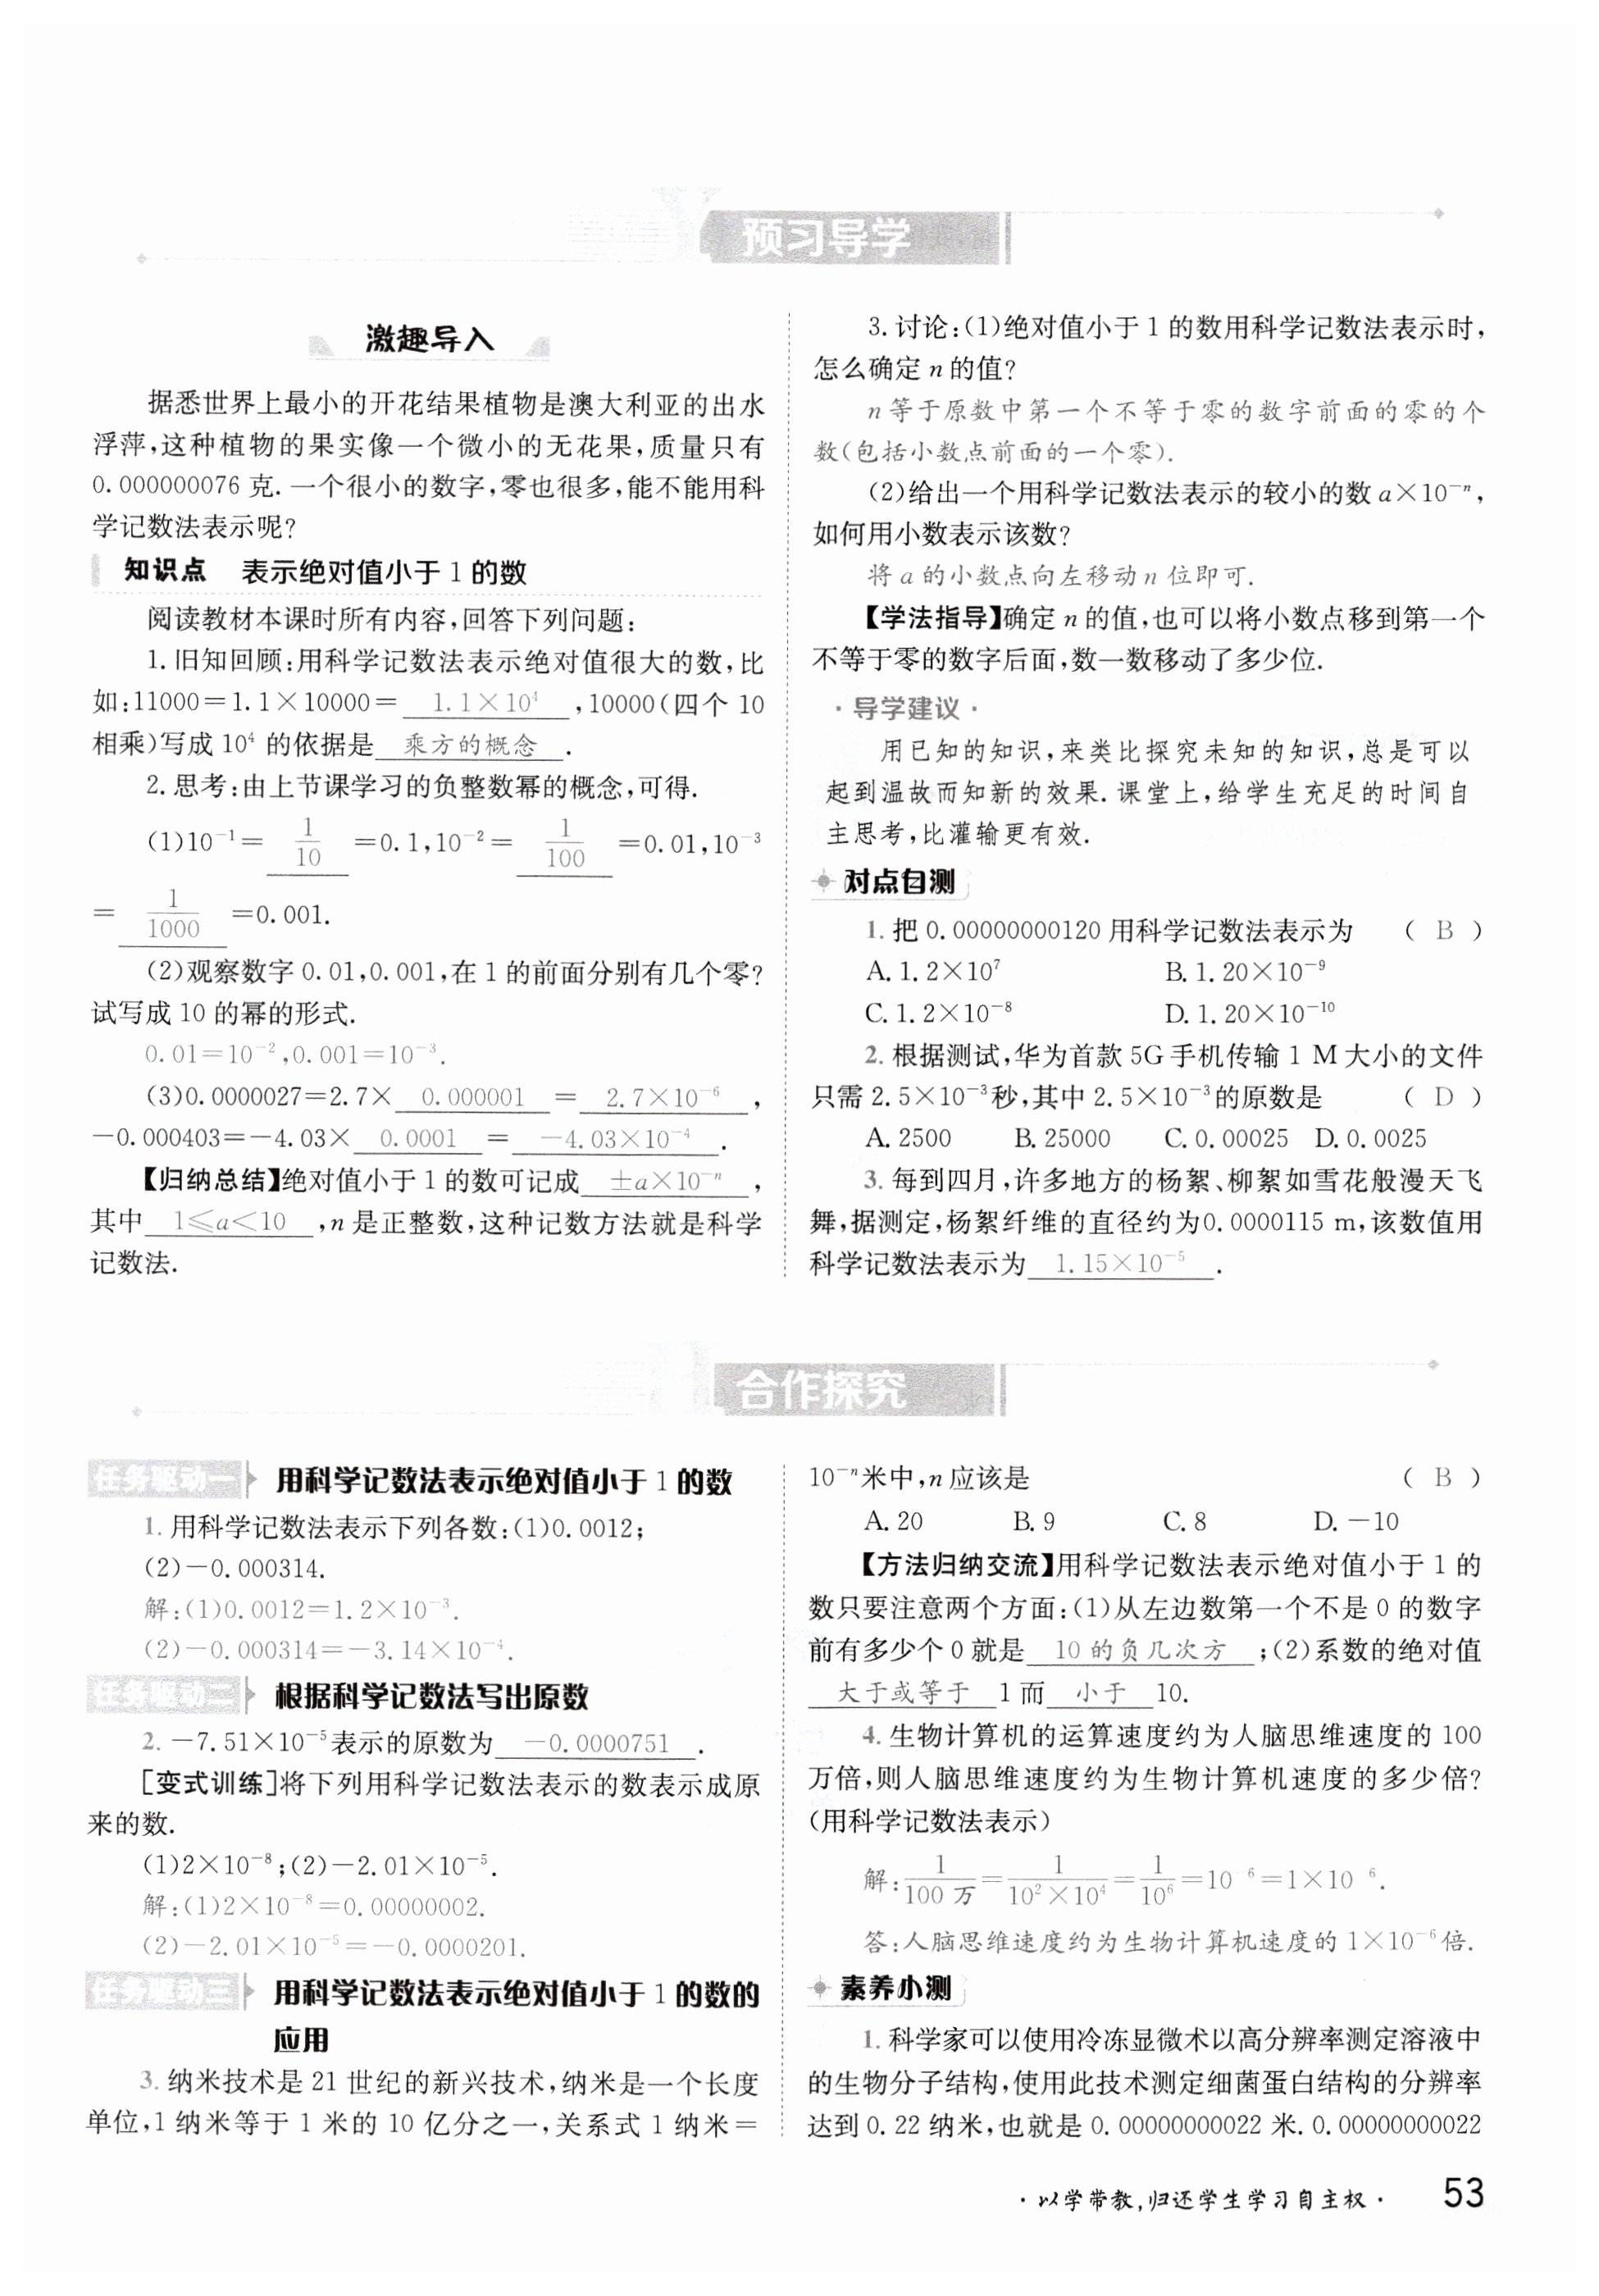 预习导学
激趣导入
据悉世界上最小的开花结果植物是澳大利亚的出水
浮萍,这种植物的果实像一个微小的无花果,质量只有
0.000000076 克.一个很小的数字,零也很多,能不能用科
学记数法表示呢?
知识点 表示绝对值小于 1 的数
阅读教材本课时所有内容,回答下列问题:
1.旧知回顾:用科学记数法表示绝对值很大的数,比
如:11000=1.1×10000= 1.1×10⁴ ,10000(四个 10
相乘)写成 10⁴ 的依据是 乘方的概念 .
2.思考:由上节课学习的负整数幂的概念,可得.
(1)10⁻¹= 1/10 =0.1,10⁻²= 1/100 =0.01,10⁻³
= 1/1000 =0.001.
(2)观察数字 0.01,0.001,在 1 的前面分别有几个零?
试写成 10 的幂的形式.
0.01=10⁻²,0.001=10⁻³.
(3)0.0000027=2.7× 0.000001 = 2.7×10⁻⁶ ,
-0.000403=-4.03× 0.0001 = -4.03×10⁻⁴ .
【归纳总结】绝对值小于 1 的数可记成 ±a×10⁻ⁿ ,
其中 1≤a<10 ,n 是正整数,这种记数方法就是科学
记数法.
3.讨论:(1)绝对值小于 1 的数用科学记数法表示时,
怎么确定 n 的值?
n 等于原数中第一个不等于零的数字前面的零的个
数(包括小数点前面的一个零).
(2)给出一个用科学记数法表示的较小的数 a×10⁻ⁿ,
如何用小数表示该数?
将 a 的小数点向左移动 n 位即可.
【学法指导】确定 n 的值,也可以将小数点移到第一个
不等于零的数字后面,数一数移动了多少位.
·导学建议·
用已知的知识,来类比探究未知的知识,总是可以
起到温故而知新的效果.课堂上,给学生充足的时间自
主思考,比灌输更有效.
对点自测
1.把 0.00000000120 用科学记数法表示为 ( B )
A.1.2×10⁷ B.1.20×10⁻⁹
C.1.2×10⁻⁸ D.1.20×10⁻¹⁰
2.根据测试,华为首款 5G 手机传输 1 M 大小的文件
只需 2.5×10⁻³秒,其中 2.5×10⁻³的原数是 ( D )
A.2500 B.25000 C.0.00025 D.0.0025
3.每到四月,许多地方的杨絮、柳絮如雪花般漫天飞
舞,据测定,杨絮纤维的直径约为0.0000115 m,该数值用
科学记数法表示为 1.15×10⁻⁵ .
合作探究
任务驱动一 用科学记数法表示绝对值小于 1 的数
1.用科学记数法表示下列各数:(1)0.0012;
(2)-0.000314.
解:(1)0.0012=1.2×10⁻³.
(2)-0.000314=-3.14×10⁻⁴.
任务驱动二 根据科学记数法写出原数
2.-7.51×10⁻⁵表示的原数为 -0.0000751 .
[变式训练]将下列用科学记数法表示的数表示成原
来的数.
(1)2×10⁻⁸;(2)-2.01×10⁻⁵.
解:(1)2×10⁻⁸=0.00000002.
(2)-2.01×10⁻⁵=-0.0000201.
任务驱动三 用科学记数法表示绝对值小于 1 的数的
应用
3.纳米技术是 21 世纪的新兴技术,纳米是一个长度
单位,1 纳米等于 1 米的 10 亿分之一,关系式 1 纳米=
10⁻ⁿ米中,n 应该是 ( B )
A.20 B.9 C.8 D.-10
【方法归纳交流】用科学记数法表示绝对值小于 1 的
数只要注意两个方面:(1)从左边数第一个不是 0 的数字
前有多少个 0 就是 10 的负几次方 ;(2)系数的绝对值
大于或等于 1 而 小于 10.
4.生物计算机的运算速度约为人脑思维速度的 100
万倍,则人脑思维速度约为生物计算机速度的多少倍?
(用科学记数法表示)
解:1/100 万=1/(10²×10⁴)=1/10⁶=10⁻⁶=1×10⁻⁶.
答:人脑思维速度约为生物计算机速度的 1×10⁻⁶倍.
素养小测
1.科学家可以使用冷冻显微术以高分辨率测定溶液中
的生物分子结构,使用此技术测定细菌蛋白结构的分辨率
达到 0.22 纳米,也就是 0.00000000022 米.0.00000000022
·以学带教,归还学生学习自主权· 53